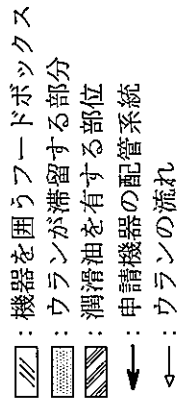 ：機器を囲うフードボックス
：ウランが滞留する部分
：潤滑油を有する部位
：申請機器の配管系統
：ウランの流れ